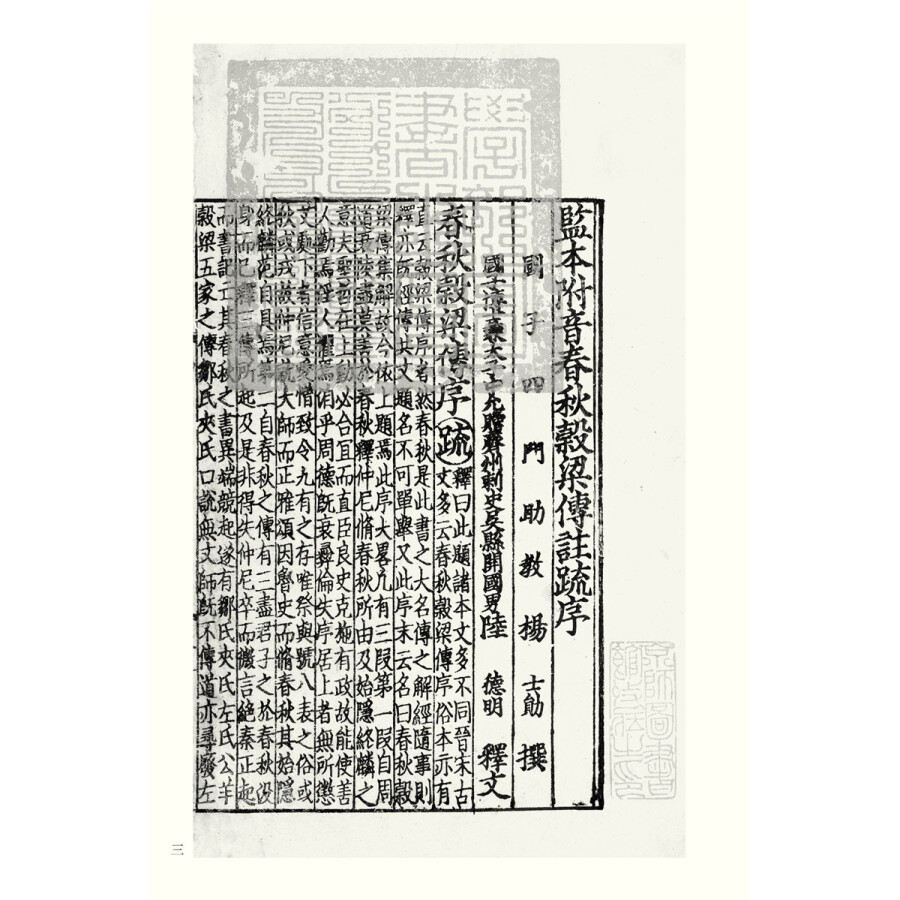 監本附音春秋穀梁傳註疏序
國子四門助教楊士勛撰
國子博士兼太子中允贈齊州刺史吳縣開國男陸德明釋文
春秋穀梁傳序
疏
釋曰此題諸本文多不同晉宋古
文多云春秋穀梁傳序俗本亦有
直云穀梁傳序者然春秋是此書之大名傳之解經隨事則
釋亦既經傳共文題名不可單舉又此序末云名曰春秋穀
梁傳集解故今依上題焉此序大畧凡有三段第一段自周
道衰陵盡莫善於春秋釋仲尼脩春秋所由及始隱終麟之
意夫聖哲在上動必合宜而直臣良史克施有政故能使善
人勸焉淫人懼焉洎乎周德既衰彝倫失序居上者無所懲
艾處下者信意愛憎致令九有之存唯祭與號八表之俗或
狄或戎故仲尼就大師而正雅頌因魯史而脩春秋其始隱
終麟范自具焉第二自春秋之傳有三盡君子之於春秋沒
身而已釋三傳所起及是非得失仲尼卒而微言絕秦正起
而書記亡其春秋之書異端競起遂有鄒氏夾氏左氏公羊
穀梁五家之傳鄒氏夾氏口說無文師既不傳道亦尋廢左
三